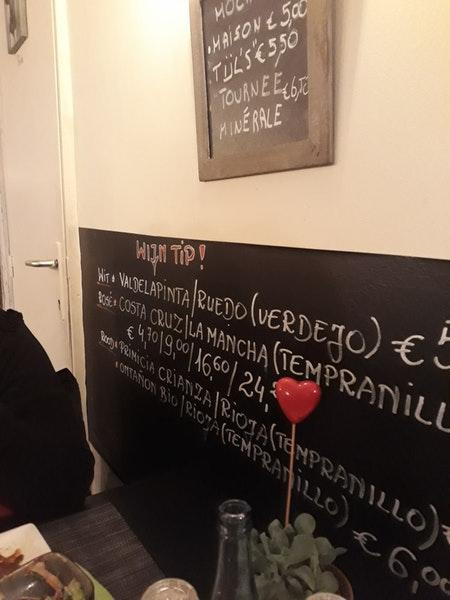 MAISON € 5,00
"TIJL'S" € 5,50
"TOURNEE
MINÉRALE €6,50
WIJN TIP!
WIT • VALDELAPINTA/RUEDO (VERDEJO) € 5
ROSÉ • COSTA CRUZ/LA MANCHA (TEMPRANILL
€ 4,70/9,00/16,60/24,
ROOD • PRIMICIA CRIANZA/RIOJA (TEMPRANILLO) €
• ONTAÑON BIO/RIOJA (TEMPRANILLO) € 6,00